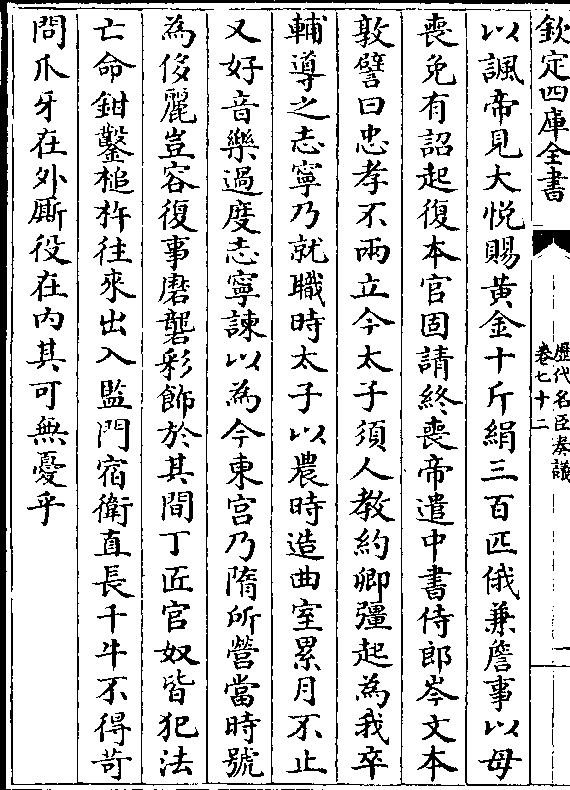 欽定四庫全書
歷代名臣奏議
卷七十二
一
以諷帝見大悅賜黃金十斤絹三百匹俄兼詹事以母
喪免有詔起復本官固請終喪帝遣中書侍郎岑文本
敦譬曰忠孝不兩立今太子須人教約卿彊起為我卒
輔導之志寧乃就職時太子以農時造曲室累月不止
又好音樂過度志寧諫以為今東宮乃隋所營當時號
為侈麗豈容復事磨礱彩飾於其間丁匠官奴皆犯法
亡命鉗鑿槌杵往來出入監門宿衛直長千牛不得苛
問爪牙在外廝役在内其可無憂乎